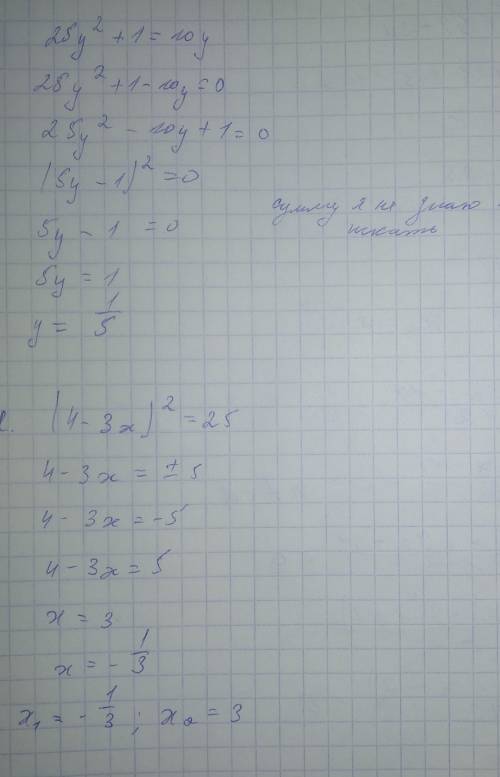 25y² + 1 = 10y
25y² + 1 - 10y = 0
25y² - 10y + 1 = 0
(5y - 1)² = 0
5y - 1 = 0
5y = 1
y = 1/5
сумму я не знаю
искать
(4 - 3x)² = 25
4 - 3x = ± 5
4 - 3x = -5
4 - 3x = 5
x = 3
x = - 1/3
x₁ = - 1/3 ; x₂ = 3